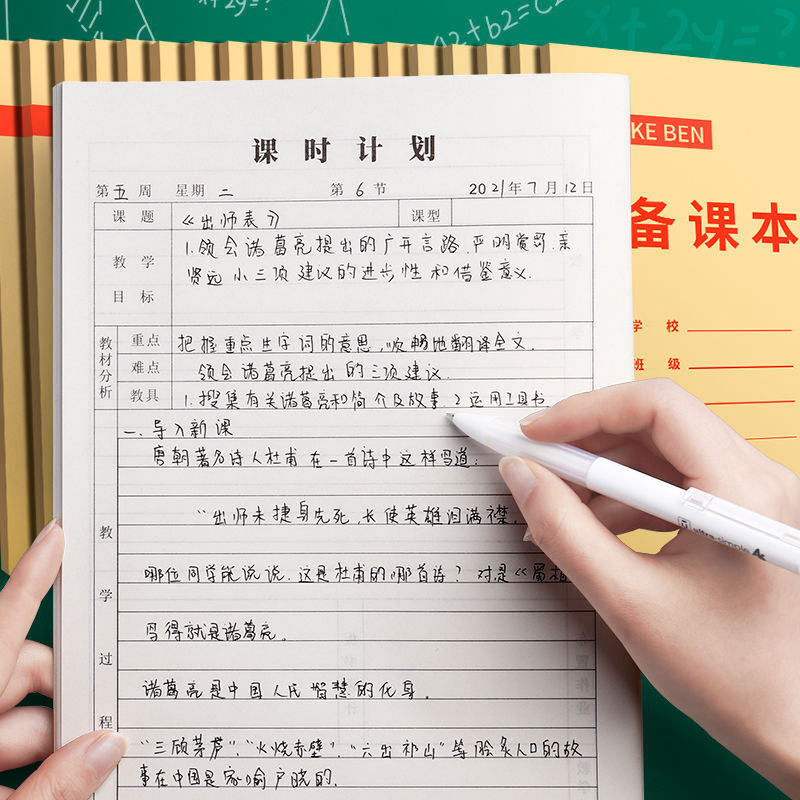 a2+b2=C2
x+2y=?
KE BEN
备课本
学 校
班 级
课时计划
第五周 星期二 第6节 2021年7月12日
课 题 《出师表》 课型
教 学 目 标
1.领会诸葛亮提出的广开言路.严明赏罚.亲
贤远小三项建议的进步性和借鉴意义.
教材分析
重点 把握重点生字词的意思,顺畅地翻译全文.
难点 领会诸葛亮提出的三项建议.
教具 1.搜集有关诸葛亮和简介及故事.2.运用工具书
教 学 过 程
一、导入新课
唐朝著名诗人杜甫在一首诗中这样写道:
"出师未捷身先死,长使英雄泪满襟.
哪位同学能说说.这是杜甫的哪首诗?对是《蜀相
写得就是诸葛亮。
诸葛亮是中国人民智慧的化身.
"三顾茅芦"."火烧赤壁"."六出祁山"等脍炙人口的故
事在中国是家喻户晓的.